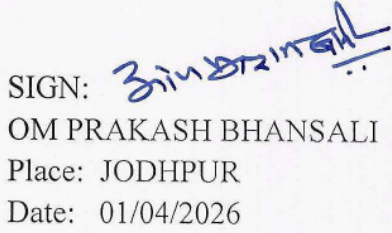 SIGN:
OM PRAKASH BHANSALI
Place: JODHPUR
Date: 01/04/2026